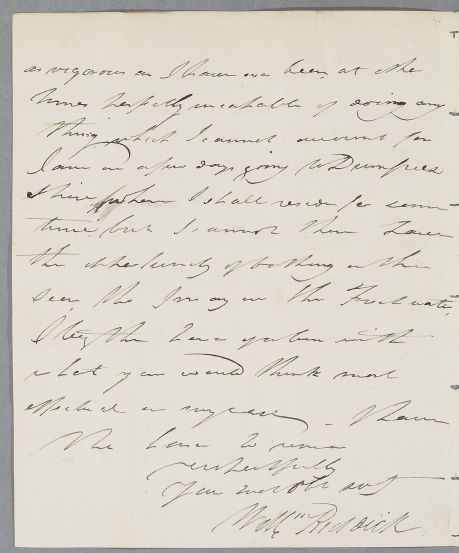 as vigorous as I have ever been, at other
times perfectly incapable of doing any
thing which I cannot account for
I am in a few days going to Dumfries
shire, where I shall reside for some
time, but I cannot there have
the opportunity of bathing in the
Sea, tho I may in the Fresh water,
I beg the favor you will
what you would think most
effectual in my case, - I have
the honor to remain
respectfully
your most ob svt
Willm Riddick